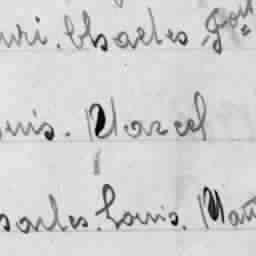 uri. Charles Jos
ouis. Marcel
harles. Louis. Mau